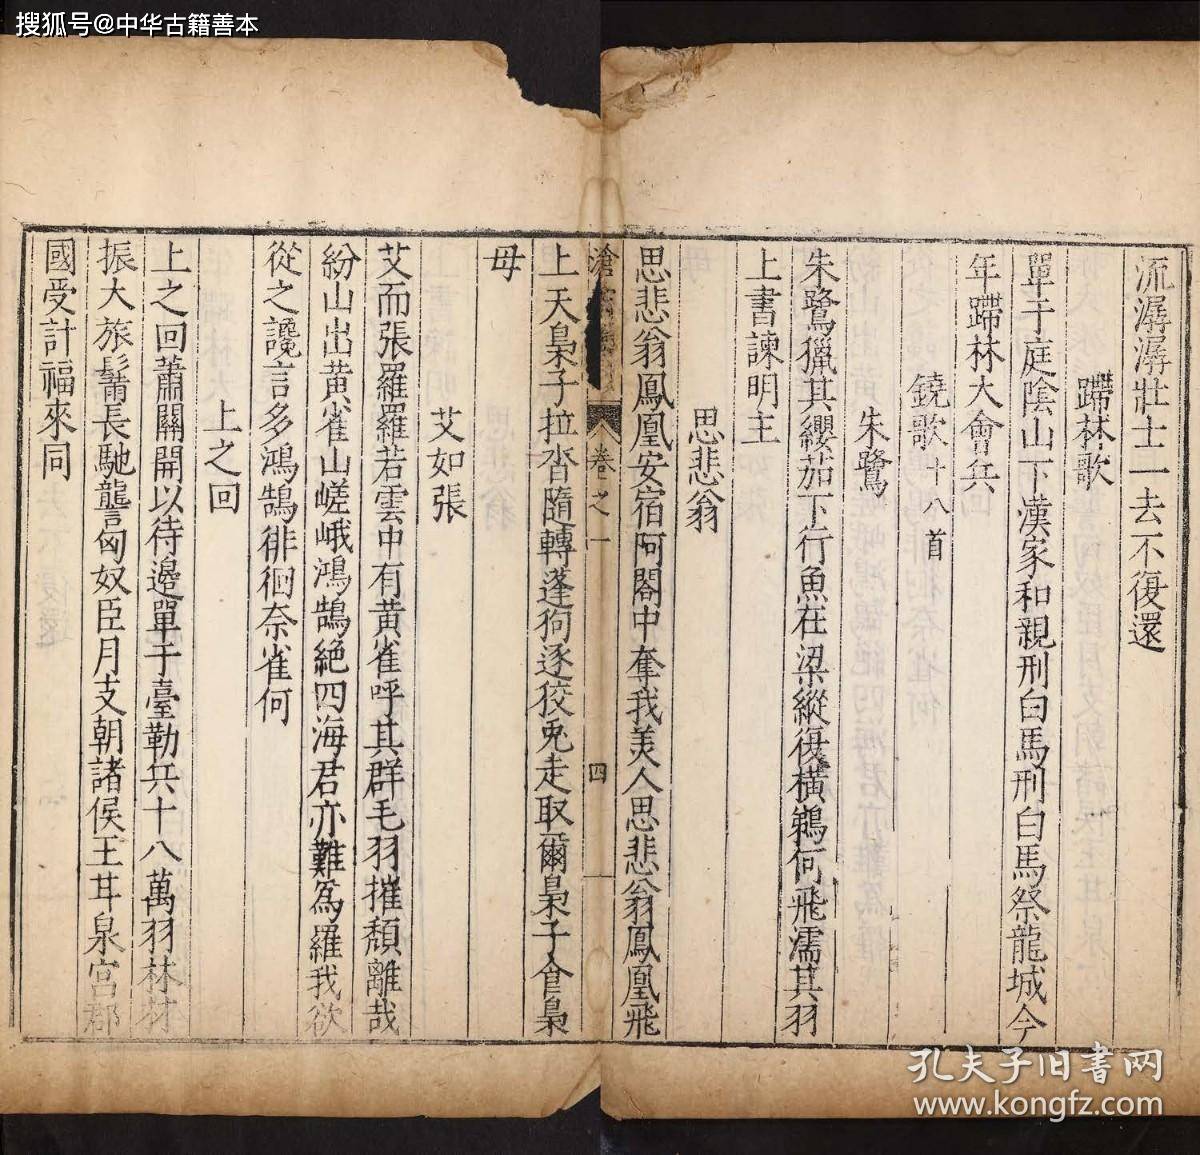 搜狐号@中华古籍善本
流潺潺壯士一去不復還
蹛林歌
單于庭陰山下漢家和親刑白馬刑白馬祭龍城今
年蹛林大會兵
鐃歌十八首
朱鷺
朱鷺獵其纓茄下行魚在梁縱復橫鵜何飛濡其羽
上書諫明主
思悲翁
思悲翁鳳凰安宿阿閣中奪我美人思悲翁鳳凰飛
滄 卷之一 四
上天梟子拉沓隨轉蓬狗逐狡兎走取爾梟子食梟
母
艾如張
艾而張羅羅若雲中有黃雀呼其群毛羽摧頹離哉
紛山出黃雀山嵯峨鴻鵠絕四海君亦難爲羅我欲
從之讒言多鴻鵠徘徊奈雀何
上之回
上之回蕭關開以待邊單于臺勒兵十八萬羽林材
振大旅鬋長馳讋匈奴臣月支朝諸侯王甘泉宮郡
國受計福來同
孔夫子旧书网
www.kongfz.com